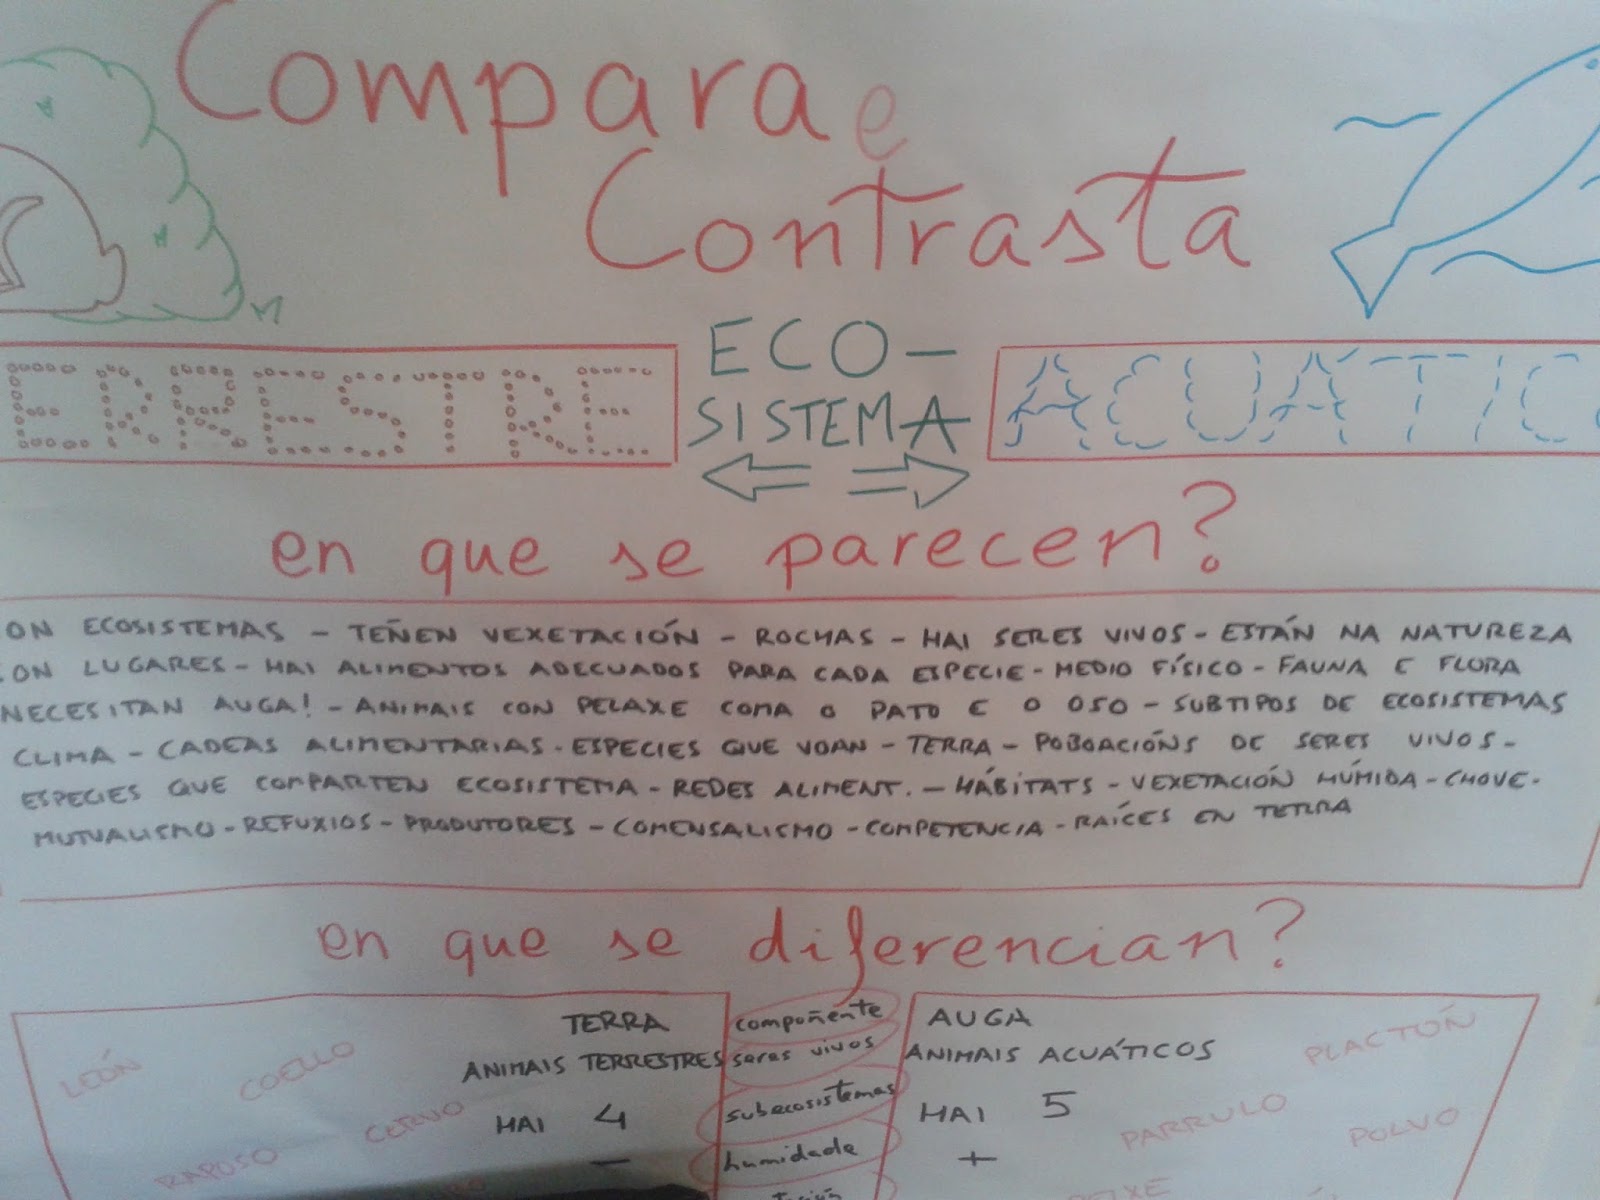 Compara e
Contrasta
ERRESTRE
ECO-
SISTEMA
ACUATIC
en que se parecen?
ON ECOSISTEMAS - TEÑEN VEXETACIÓN - ROCHAS - HAI SERES VIVOS - ESTÁN NA NATUREZA
ON LUGARES - HAI ALIMENTOS ADECUADOS PARA CADA ESPECIE - MEDIO FÍSICO - FAUNA E FLORA
NECESITAN AUGA! - ANIMAIS CON PELAXE COMA O PATO E O OSO - SUBTIPOS DE ECOSISTEMAS
CLIMA - CADEAS ALIMENTARIAS - ESPECIES QUE VOAN - TERRA - POBOACIÓNS DE SERES VIVOS -
ESPECIES QUE COMPARTEN ECOSISTEMA - REDES ALIMENT. - HÁBITATS - VEXETACIÓN HÚMIDA - CHOVE -
MUTUALISMO - REFUXIOS - PRODUTORES - COMENSALISMO - COMPETENCIA - RAÍCES EN TERRA
en que se diferencian?
TERRA compoñente AUGA
ANIMAIS TERRESTRES seres vivos ANIMAIS ACUÁTICOS
LEÓN COELLO PLACTOÑ
HAI 4 subecosistemas HAI 5
CERVO PARRULO POLVO
- humidade +
RAPOSO